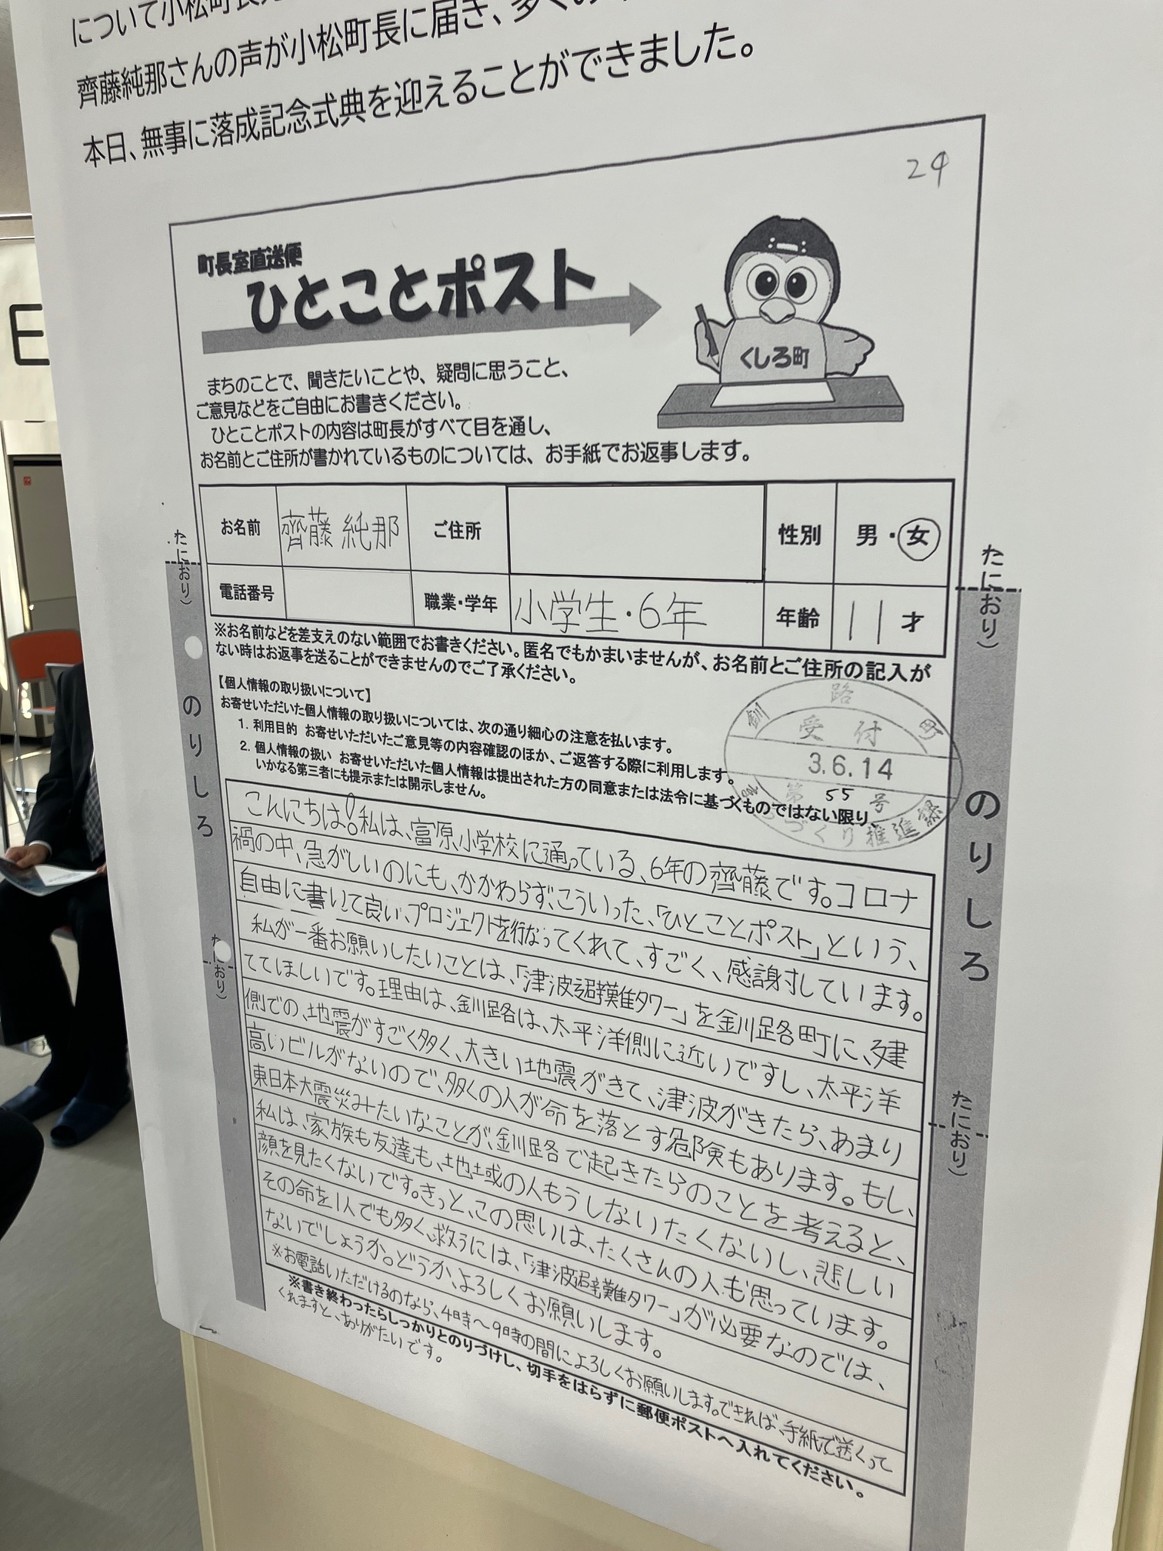 について小松町長
齊藤純那さんの声が小松町長に届き、多くの
本日、無事に落成記念式典を迎えることができました。
24
町長室直送便
ひとことポスト
くしろ町
まちのことで、聞きたいことや、疑問に思うこと、
ご意見などをご自由にお書きください。
ひとことポストの内容は町長がすべて目を通し、
お名前とご住所が書かれているものについては、お手紙でお返事します。
お名前 齊藤 純那 ご住所 性別 男・女
電話番号 職業・学年 小学生・6年 年齢 11才
※お名前などを差支えのない範囲でお書きください。匿名でもかまいませんが、お名前とご住所の記入が
ない時はお返事を送ることができませんのでご了承ください。
【個人情報の取り扱いについて】
お寄せいただいた個人情報の取り扱いについては、次の通り細心の注意を払います。
1. 利用目的 お寄せいただいたご意見等の内容確認のほか、ご返答する際に利用します。
2. 個人情報の扱い お寄せいただいた個人情報は提出された方の同意または法令に基づくものではない限り、
いかなる第三者にも提示または開示しません。
釧路町
受付
3.6.14
第55号
づくり推進課
こんにちは!私は、富原小学校に通っている、6年の齊藤です。コロナ
禍の中、急がしいのにも、かかわらず、こういった、「ひとことポスト」という、
自由に書いて良い、プロジェクトを行なってくれて、すごく、感謝しています。
私が一番お願いしたいことは、「津波避難タワー」を釧路町に、建
ててほしいです。理由は、釧路は、太平洋側に近いですし、太平洋
側での、地震がすごく多く、大きい地震がきて、津波がきたら、あまり
高いビルがないので、多くの人が命を落とす危険もあります。もし、
東日本大震災みたいなことが、釧路で起きたらのことを考えると、
私は、家族も友達も、地域の人もうしないたくないし、悲しい
顔を見たくないです。きっと、この思いは、たくさんの人も思っています。
その命を1人でも多く、救うには、「津波避難タワー」が必要なのでは、
ないでしょうか。どうか、よろしくお願いします。
※お電話いただけるのなら、4時〜9時の間によろしくお願いします。できれば、手紙で送くって
くれますと、ありがたいです。
※書き終わったらしっかりとのりづけし、切手をはらずに郵便ポストへ入れてください。
たにおり)
のりしろ
たにおり)
たにおり)
のりしろ
たにおり)